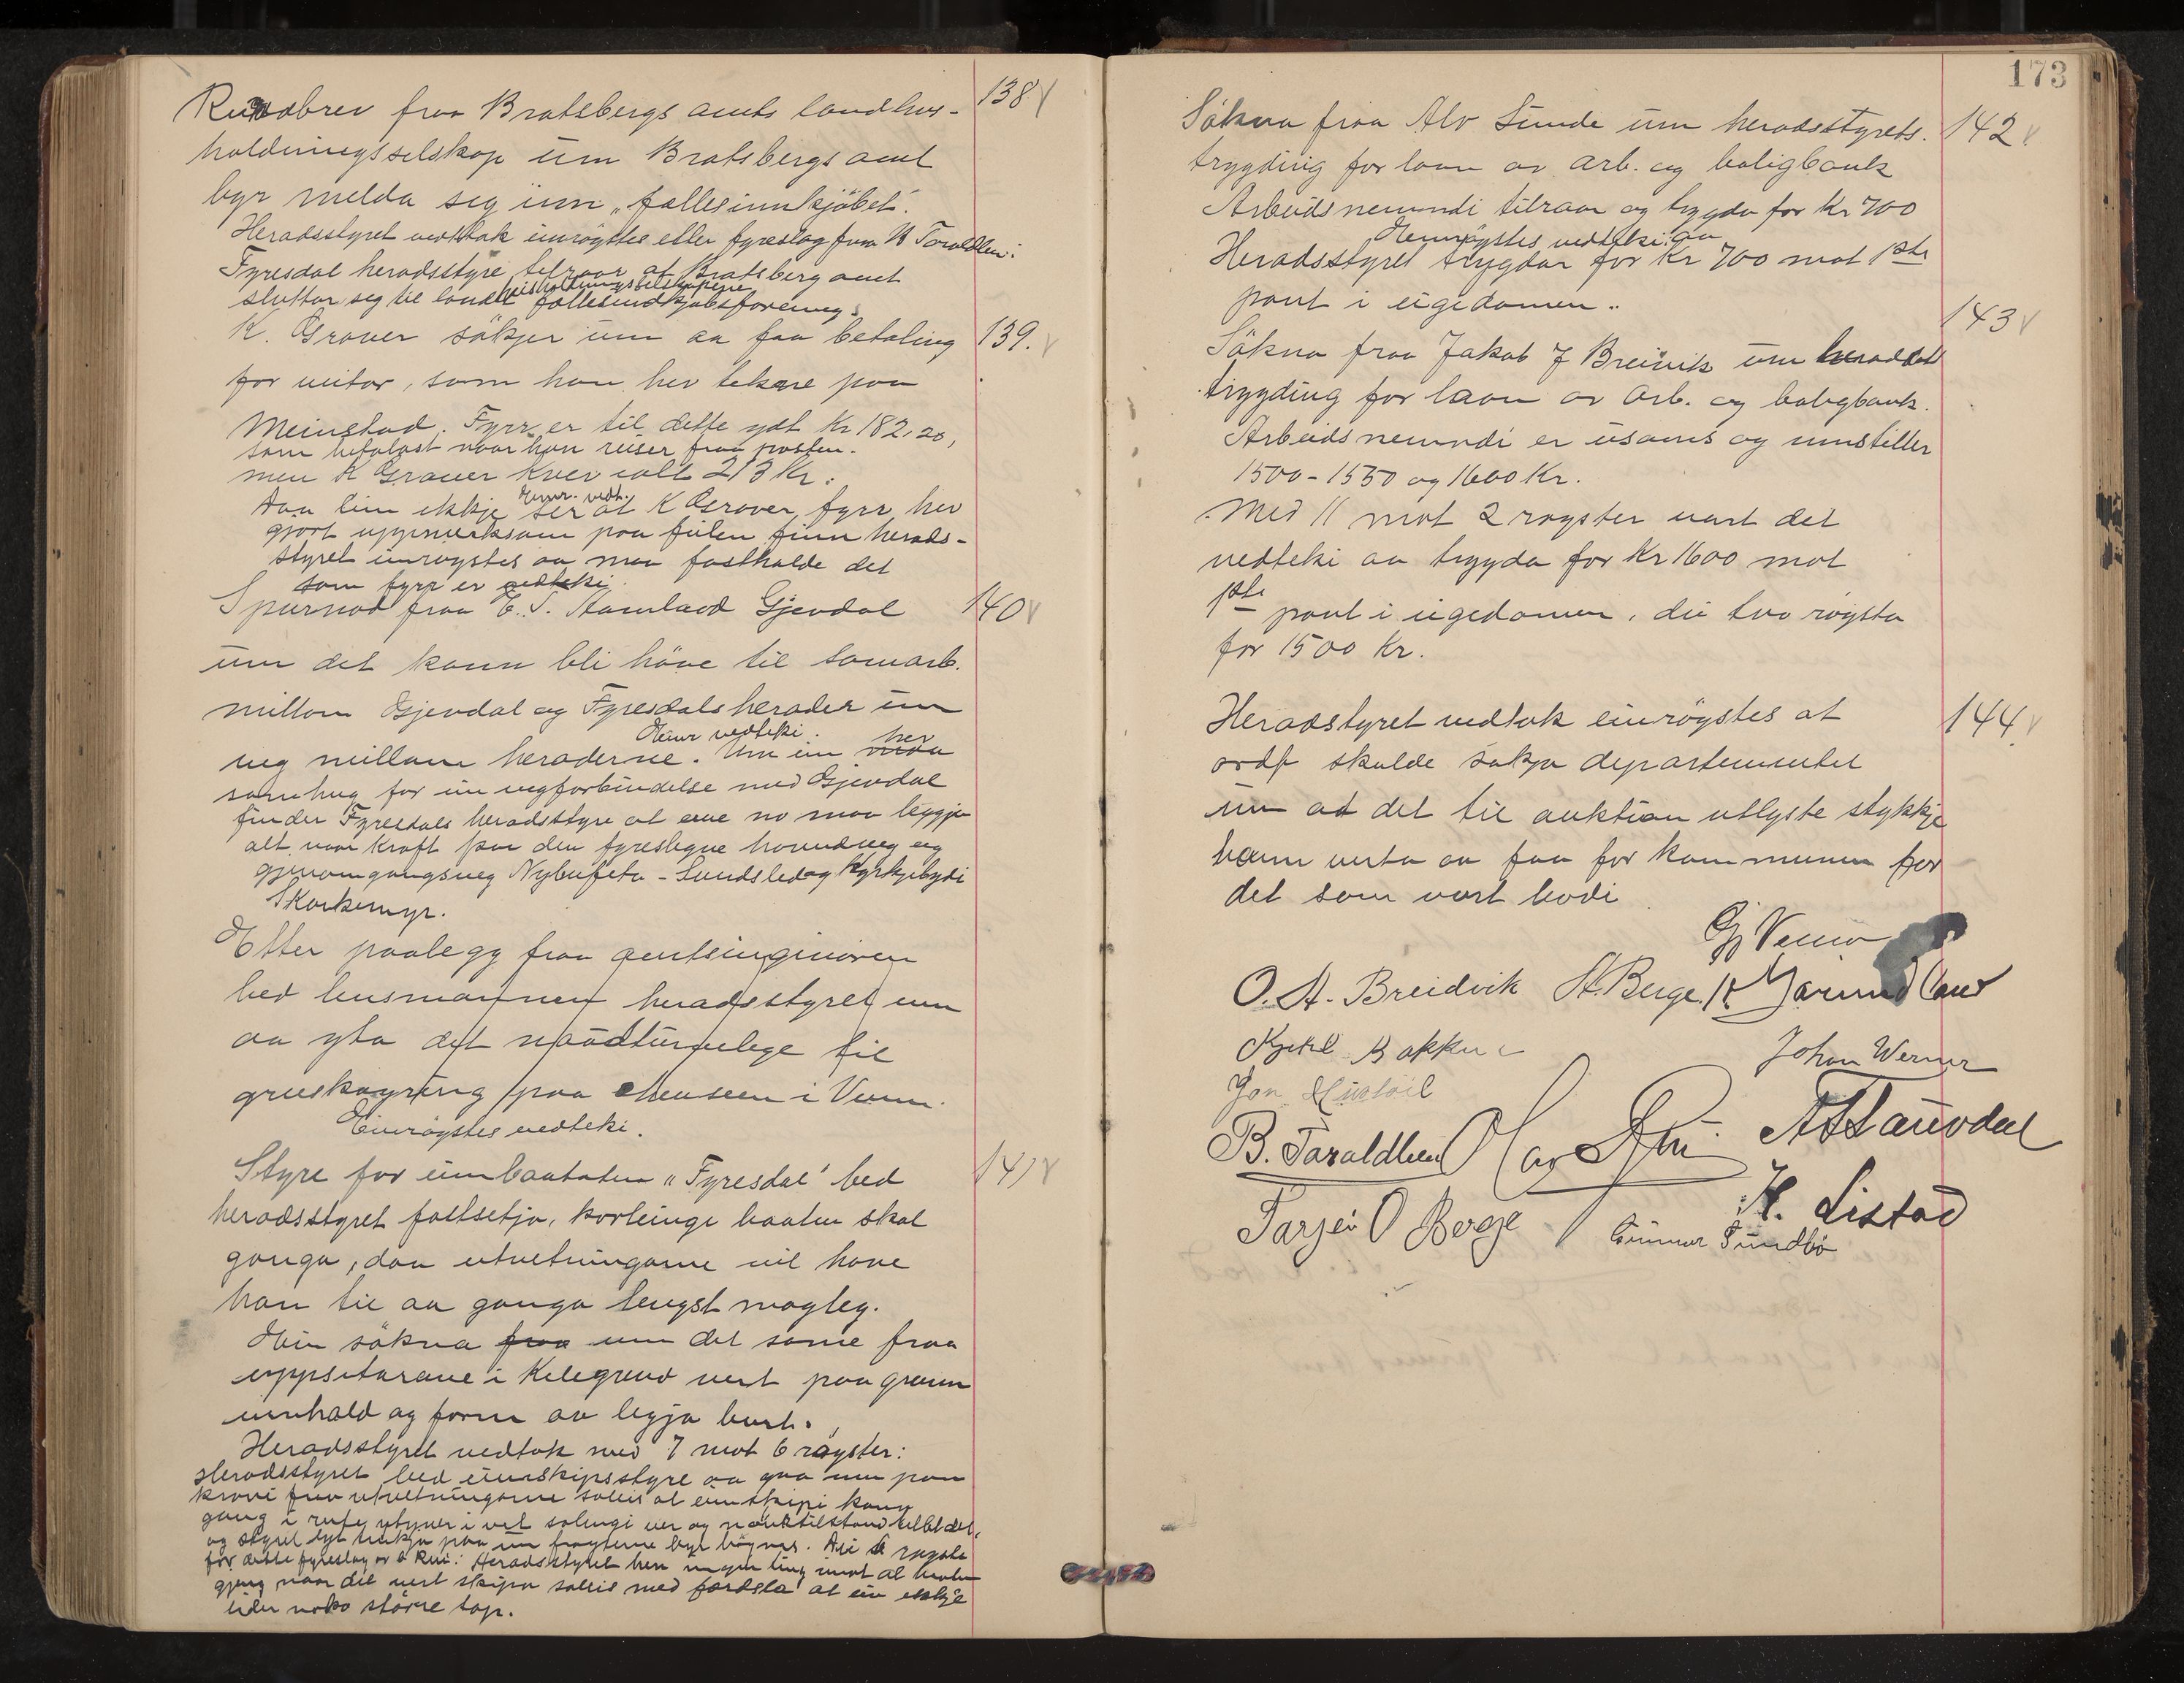 138
Rundbrev fraa Bratsbergs amts landhus-
holdningsselskap um Bratsbergs amt
byr melda seg inn i "fellesinnkjöbet".
Heradsstyret vedtok einrögstes etter fyreslag fraa B Taraldlien:
Fyresdal heradsstyre tilraar at Bratsberg amt
sluttar seg til landhusholdningsselskapene
fellesindkjöbsforening.
139.
K. Graver sökjer um aa faa betaling
for mitar, som han hev tekne paa
Meinstad. Fyrr er til dette ydt Kr 182,20,
som betalast naar han reiser fraa posten.
men K Graver krev ialt 213 Kr.
Einr. vedt.
Daa ein ikkje ser at K Graver fyrr hev
gjort uppmerksam paa feilen finn herads-
styret einrögstes aa maa fasthalde det
som fyrr er vedteki.
140
Spurnad fraa E. T. Hamland Gjevdal
um det kann bli höve til samarb.
millom Gjevdal og Fyresdals herader um
veg millom heraderne. Einr vedteki. Um ein hev
samhug for ein vegforbindelse med Gjevdal
finder Fyresdals heradsstyre at eine no maa leggja
alt vaar kraft paa den fyreslegne hovudveg og
gjenomgangsveg Nybufeta - Sundsled og Kyrkjebygdi
Skorkemyr.
Etter paalegg fraa amtsingeniören
bed lensmannen heradsstyret um
aa yta det naudturvelege til
gruskøyring paa chauseen i Veum.
Einrögstes vedteki.
141
Styre for eimbaataten "Fyresdal" bed
heradsstyret fastsetja, korleingi baaten skal
ganga, daa utretningarne vil have
han til aa ganga lengst mogleg.
Ein sökna fraa um det same fraa
uppsitarane i Kilegrend vert paa grunn
innhald og form av legja burt.
Heradsstyret vedtok med 7 mot 6 røyster:
Heradsstyret bed eimskipsstyre aa gaa inn paa
kravi fraa utretningarne soleis at eimskipi kann
gang i rute utyver i vel solengi ver og tilstand tillet det,
og styret lyt tenkja paa um fragterne byr högnas. Dei 6 røysta
for dette fyreslag av B Rui: Heradsstyret hev ingen ting imot at baaten
gjeng naar det vert skipa soleis med ferdsla at ein ikkje
lider noko större tap.
173
142
Sökna fraa Alv Sunde um heradsstyrets
trygding for laan av arb. og boligbank
Arbeidsnemndi tilraar og trygda for Kr 700
Heradsstyret Einrögstes vedteki aa trygdar for Kr 700 mot 1ste
pant i eigedomen.
143
Sökna fraa Jakob J Breivik um heradet
trygding for laan av arb. og boligbank.
Arbeidsnemndi er usams og innstiller
1500 - 1550 og 1600 Kr.
Med 11 mot 2 røyster vart det
vedteki aa trygda for Kr 1600 mot
1ste pant i eigedomen, dei two röysta
for 1500 Kr.
144.
Heradstyret vedtok einrögstes at
ordf skulde sökja departementet
um at det til auktion utlyste stykkje
kann verta aa faa for kommunen for
det som vart bodi
Gj Veum
O. A. Breidvik H. Berge K Momrak
Kjetil Bakken
Johan Werner
Jon
B. Taraldlien Olav Rui
Tarjei O Berge
H. Listad
Gunnar Sundbö